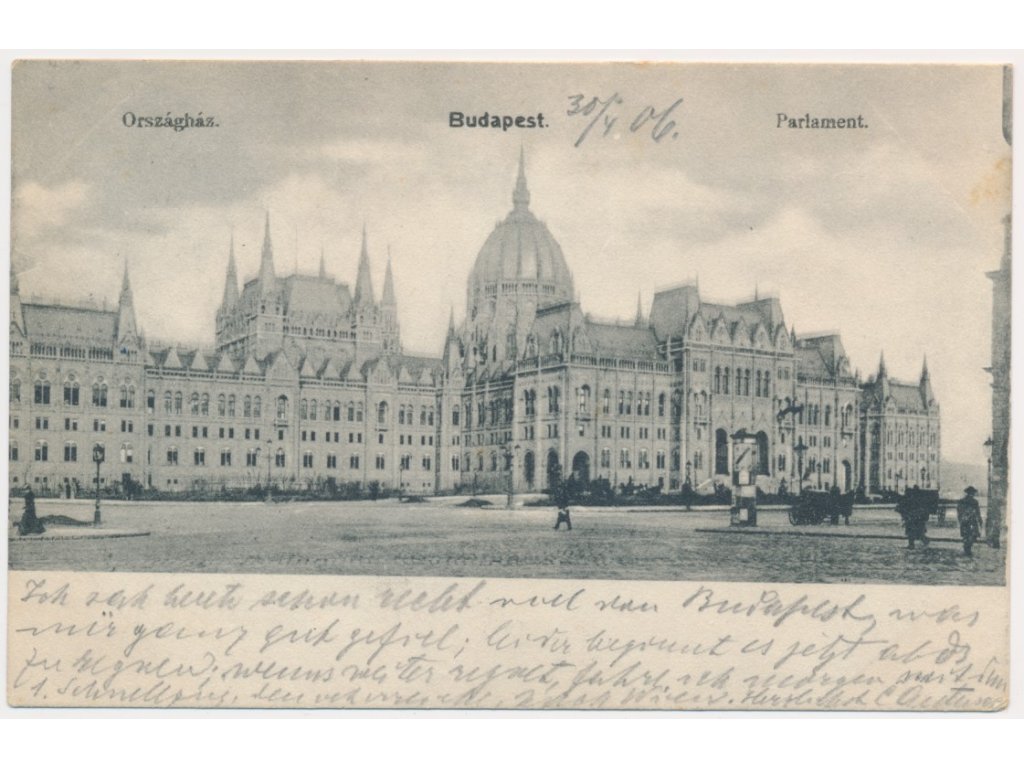 Országház. Budapest. 30/4 06. Parlament.
Ich sah heute schon recht viel von Budapest, was
mir ganz gut gefiel; leider beginnt es jetzt abds
zu regnen. wenns weiter regnet, fahre ich morgen mit dem
1. Schnellzug, den ich erreiche, nach Wien. Herzlichst